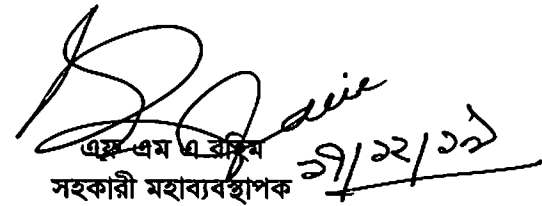 এফ এম এ রহিম
সহকারী মহাব্যবস্থাপক ১৭/১২/১৯